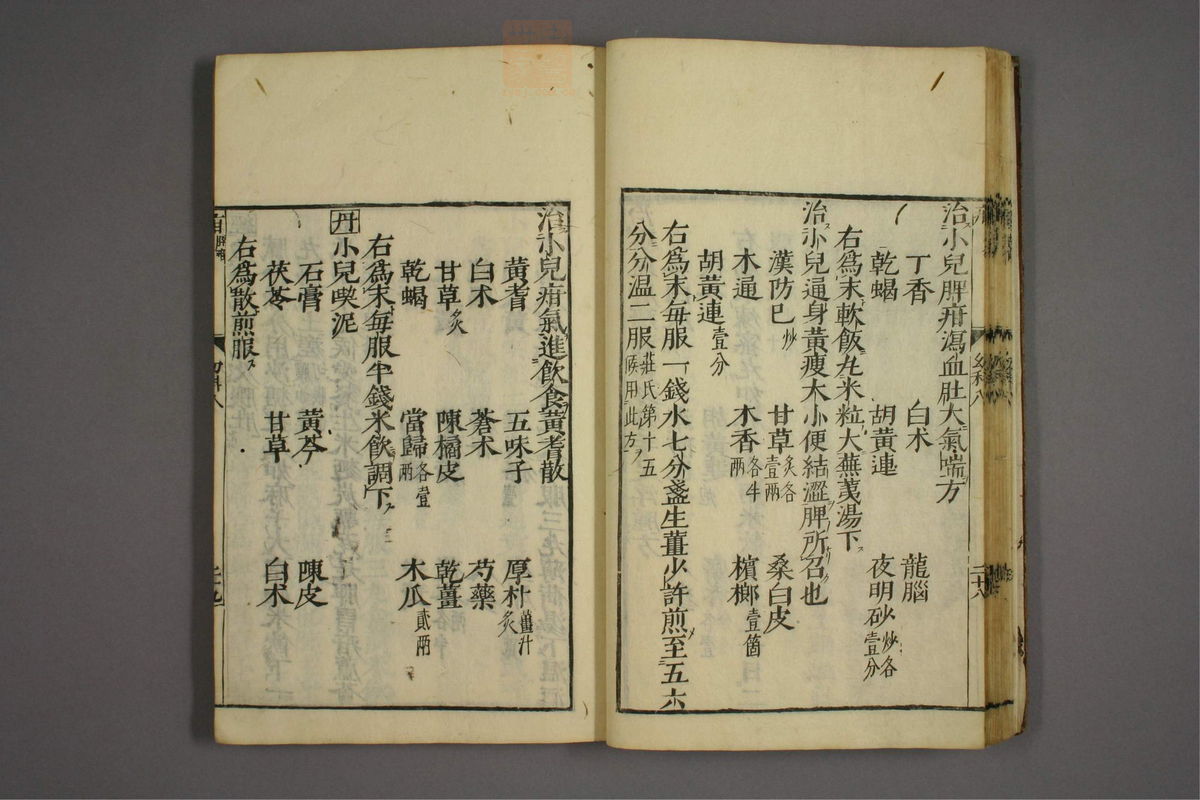 治小兒脾疳瀉血肚大氣喘方
丁香 白朮 龍腦
乾蝎 胡黃連 夜明砂炒各壹分
右為末軟飯丸米粒大蕪荑湯下
治小兒通身黃瘦大小便結澀脾所召也
漢防巳炒 甘草炙各壹兩 桑白皮
木通 木香各半兩 檳榔壹箇
胡黃連壹分
右為末每服一錢水七分盞生薑少許煎至五六
分分溫二服莊氏第十五候用此方
幼科八
二十八
治小兒疳氣進飲食黃耆散
黃耆 五味子 厚朴薑汁炙
白朮 蒼朮 芍藥
甘草炙 陳橘皮 乾薑
乾蝎 當歸各壹兩 木瓜貳兩
右為末每服半錢米飲調下
丹小兒喫泥
石膏 黃芩 陳皮
茯苓 甘草 白朮
右為散煎服